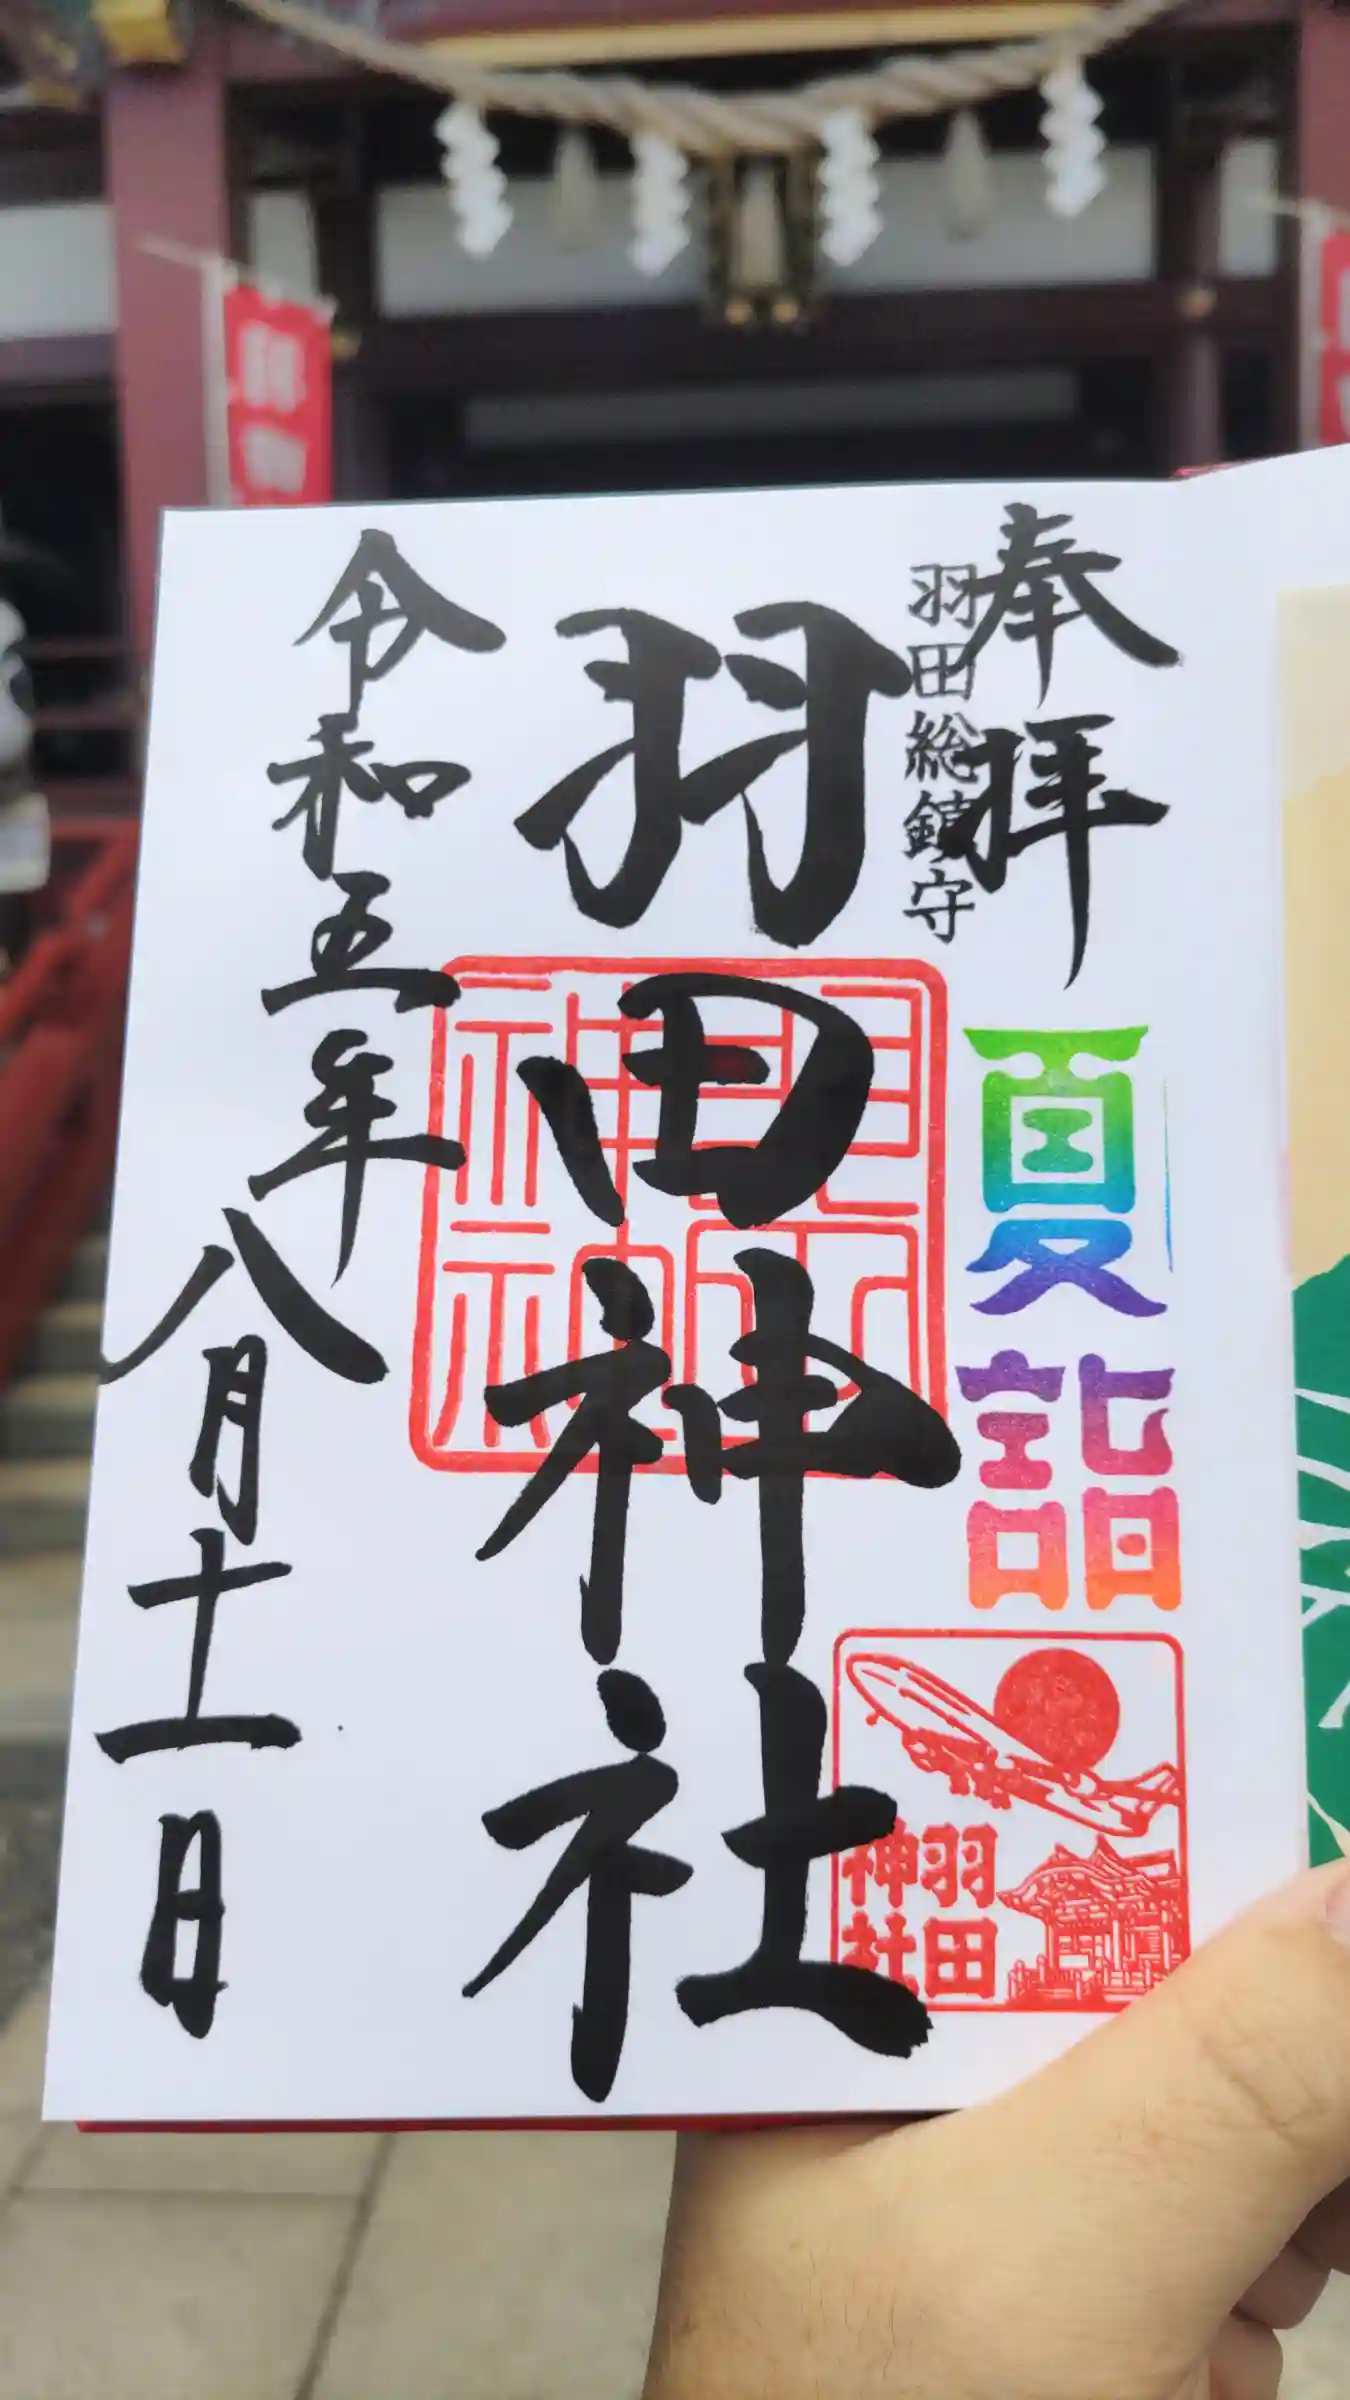 奉拝
羽田総鎮守
夏詣
羽田
神社
羽田神社
令和五年八月十一日